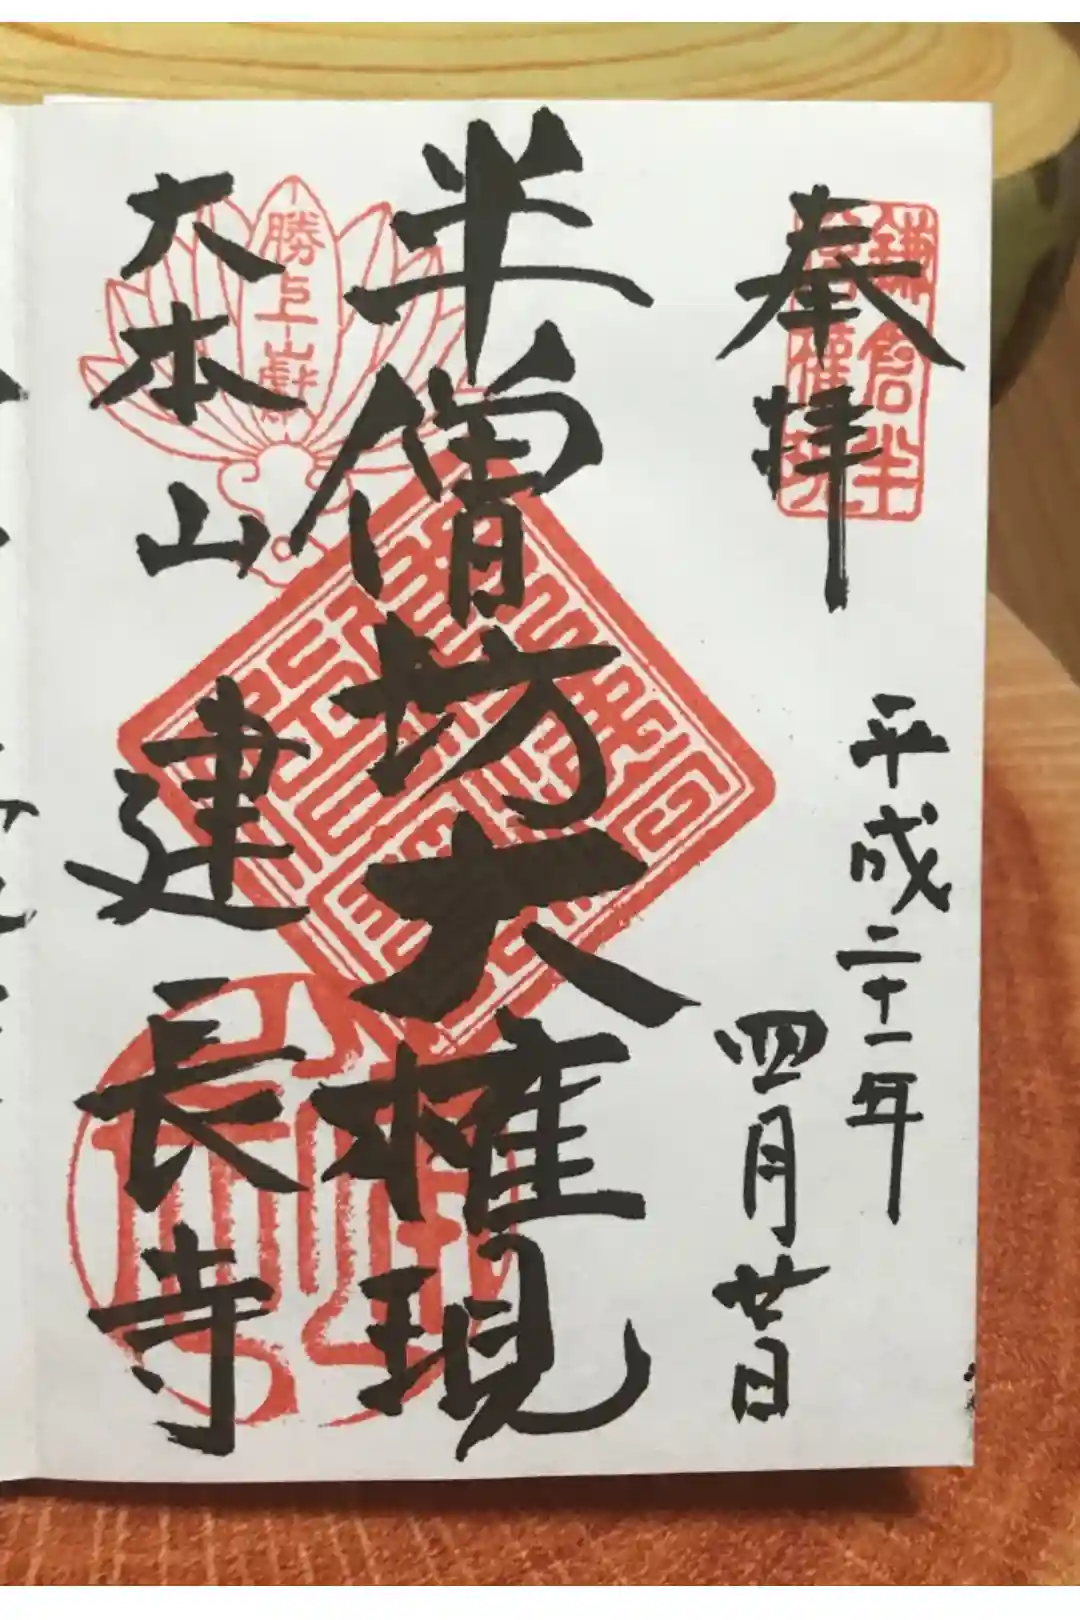 奉拝
平成二十一年
四月廿日
半僧坊大権現
大本山
建長寺
鎌倉半
勝上山